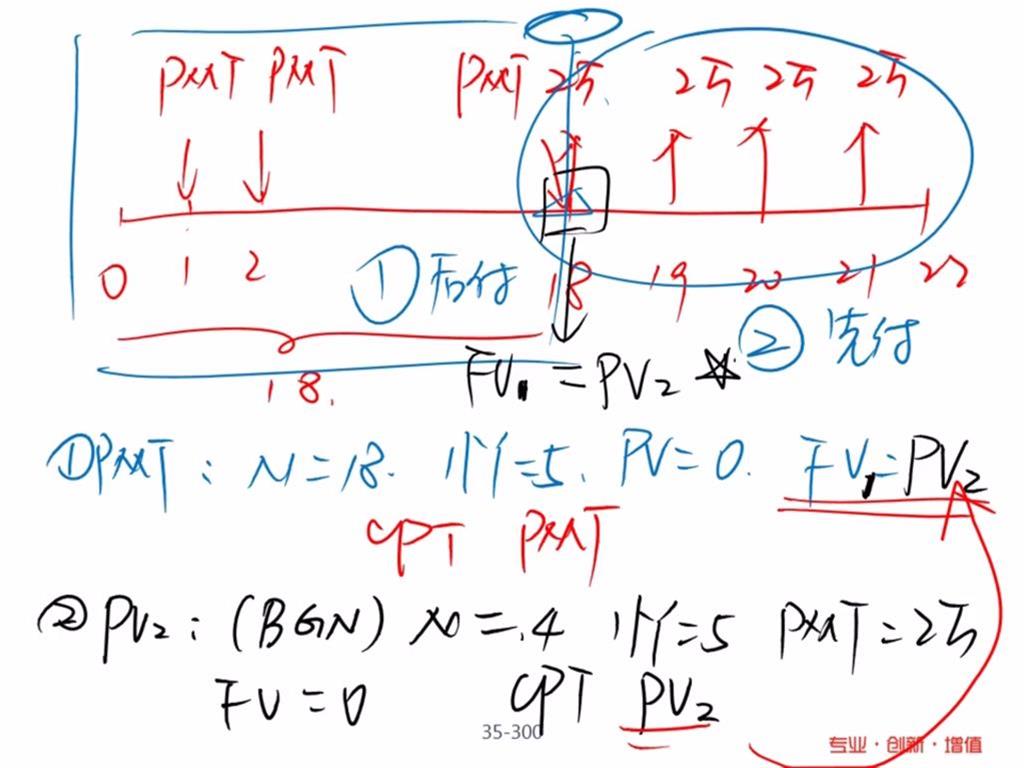 PMT PMT PMT 2万 2万 2万 2万
0 1 2 18 19 20 21 22
① 后付
② 先付
18.
FV₁ = PV₂ ☆
①PMT: N=18. I/Y=5. PV=0. FV₁=PV₂
CPT PMT
② PV₂: (BGN) N=4 I/Y=5 PMT=2万
FV=0 CPT PV₂
35-300
专业·创新·增值